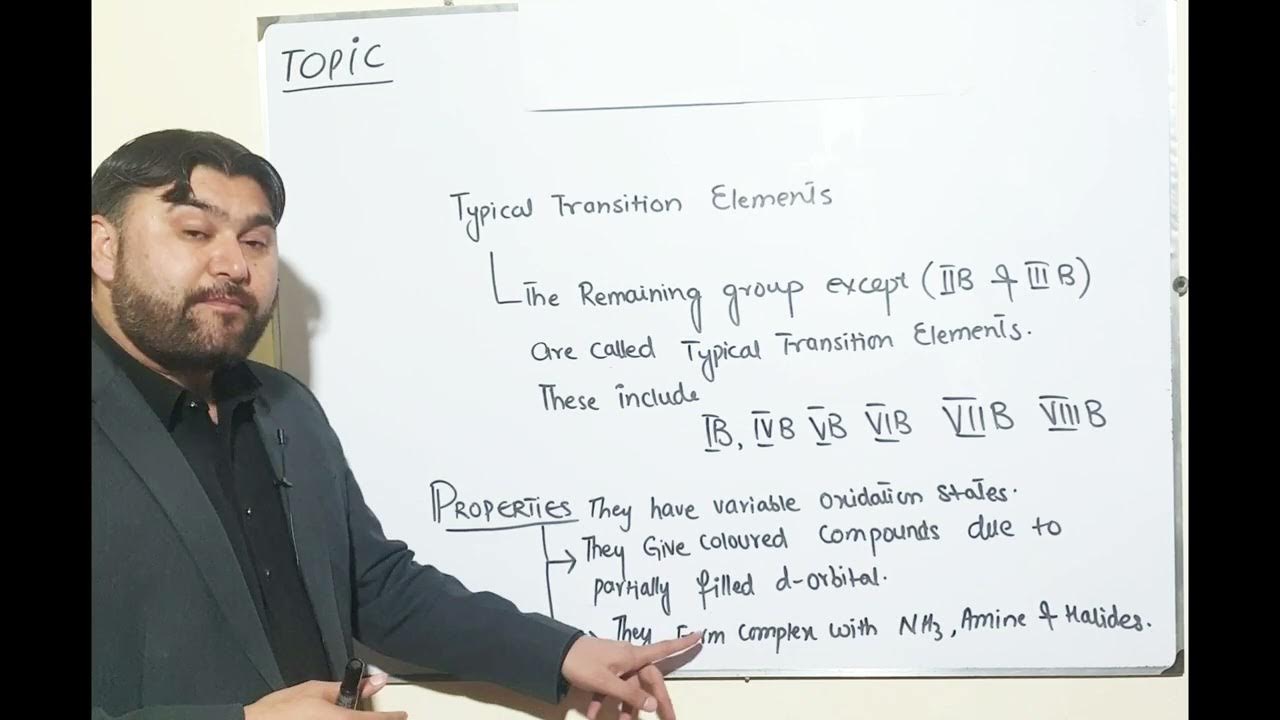 TOPIC
Typical Transition Elements
The Remaining group except (IIB & IIIB)
are called Typical Transition Elements.
These include
IB, IVB VB VIB VIIB VIIIB
PROPERTIES They have variable oxidation states.
They Give coloured compounds due to
partially filled d-orbital.
They Form complex with NH3, Amine & Halides.